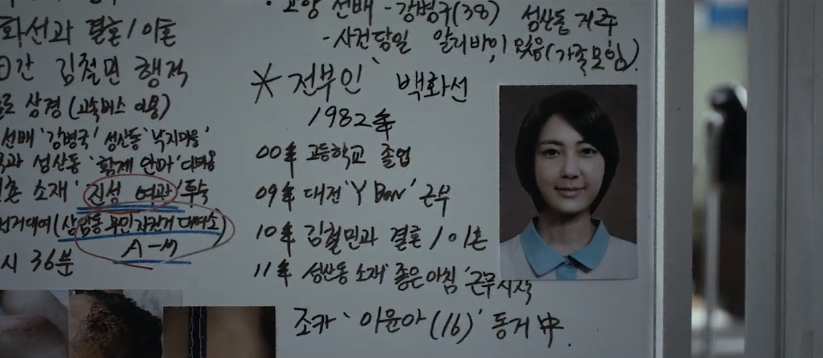 고향 선배 - 강병구(38) 성산동 거주
- 사건당일 알리바이 있음(가족모임)
화선과 결혼/이혼
간 김철민 행적
상경(고속버스 이용)
선배 '강병국' 성산동 '낙지마을'
성산동 '황제 안마'
소재 '진성 여관' 투숙
(상암동 무인자전거 대여소)
A-m
시 36분
* 전부인 백화선
1982年
00年 고등학교 졸업
09年 대전 'Y Bar' 근무
10年 김철민과 결혼/이혼
11年 성산동 소재 '좋은아침' 근무시작
조카 '이윤아(16)' 동거中.